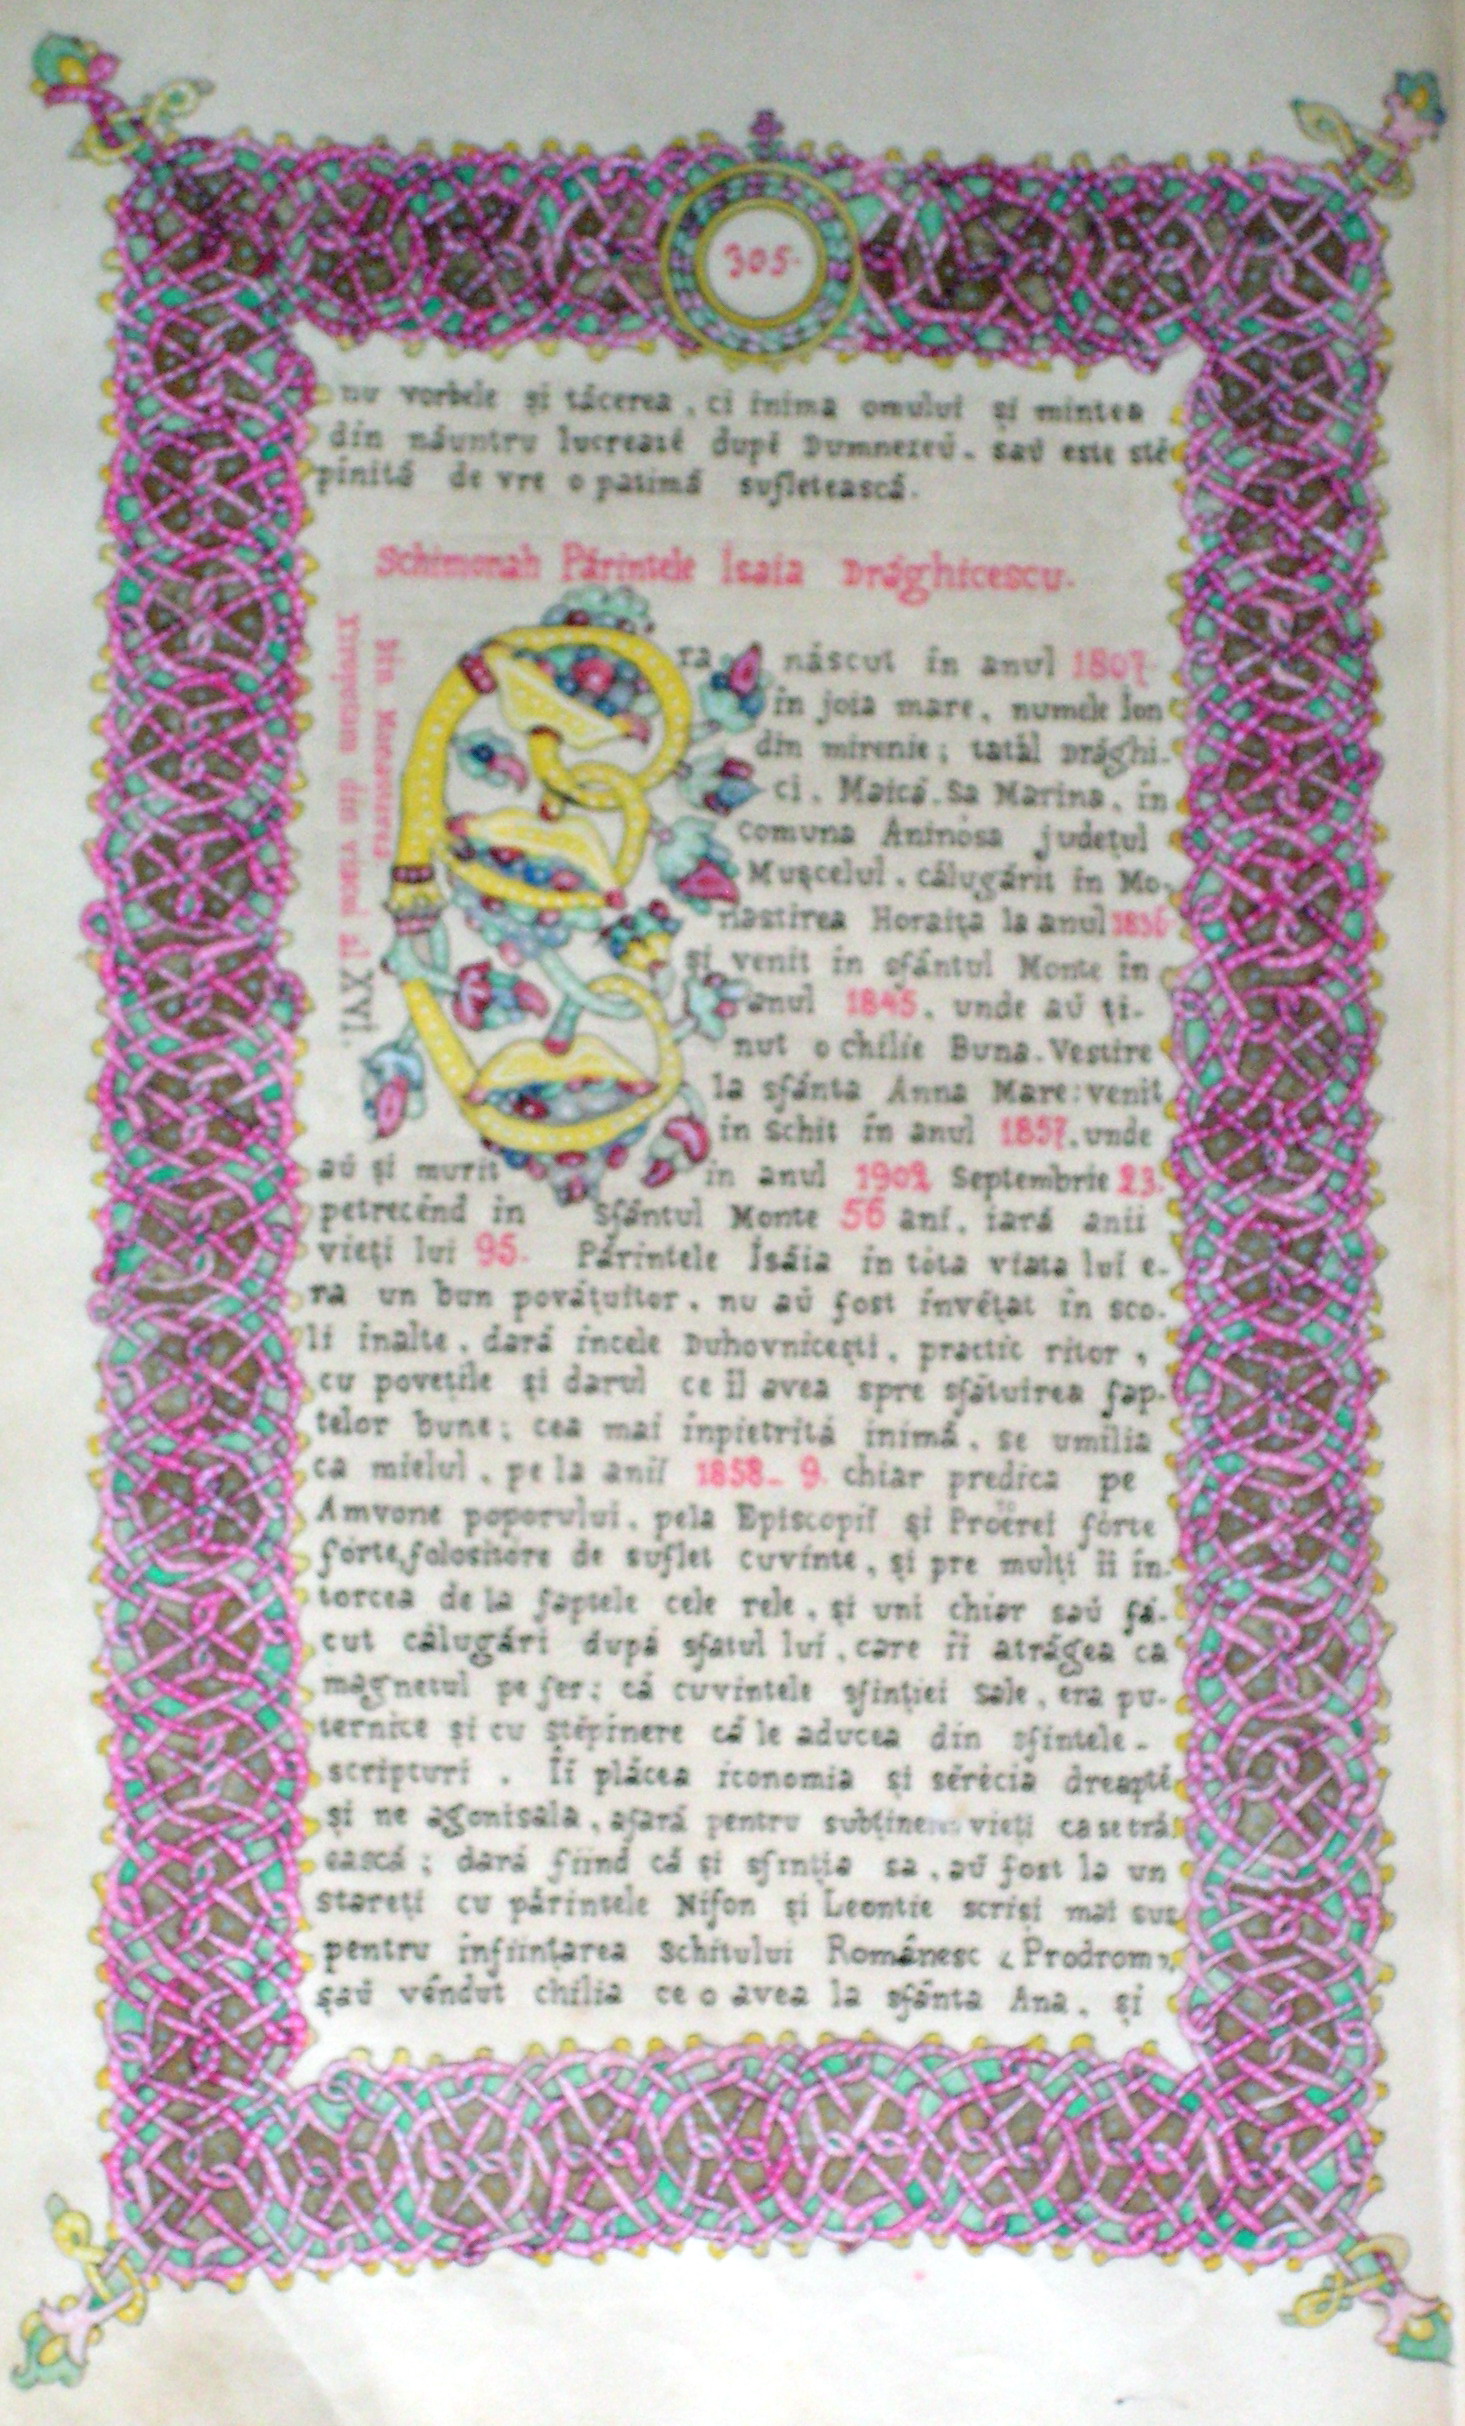 305.
nu vorbele și tăcerea, ci inima omului și mintea
din năuntru lucrează după Dumnezeŭ. saŭ este stĕ
pinită de vre o patimă sufletească.
Schimonah Părintele Isaia Drăghicescu.
Era născut în anul 1807
în joia mare, numele Ion
din mirenie; tatăl Drăghi-
ci, Maică-Sa Marina, în
comuna Aninósa județul
Mușcelul, călugărit în Mo-
nastirea Horaița la anul 1836
și venit în sfântul Monte în
anul 1845, unde aŭ ți-
nut o chilie Buna-Vestire
la sfânta Anna Mare: venit
in schit în anul 1857, unde
aŭ și murit în anul 1902 Septembrie 23.
petrecênd in sfântul Monte 56 ani, iară anii
vieți lui 95. Părintele Isăia in tóta viata lui e-
ra un bun povățuitor, nu aŭ fost învĕțat în sco-
li inalte, dară incele Duhovnicești, practic ritor,
cu povețile și darul ce îl avea spre sfătuirea fap-
telor bune; cea mai inpietrită inimă, se umilia
ca mielul, pe la anii 1858-9. chiar predica pe
Amvone poporului, pela Episcopii și Proerei fórte
fórte folositóre de suflet cuvinte, și pre mulți ii în-
torcea de la faptele cele rele, și uni chiar saŭ fă-
cut călugări după sfatul lui, care îi atrăgea ca
magnetul pe fer; că cuvintele sfinției sale, era pu-
ternice și cu stĕpinere că le aducea din sfintele-
scripturi. Îi plăcea iconomia și sĕrĕcia dreaptĕ
și ne agonisala, afară pentru subținerea vieți ca se tră
ească; dară fiind că și sfinția sa, aŭ fost la un
stareți cu părintele Nifon și Leontie scriși mai sus
pentru inființarea Schitului Românesc „Prodrom",
șaŭ vândut chilia ce o avea la sfânta Ana, și
din
din vécul al XVI.